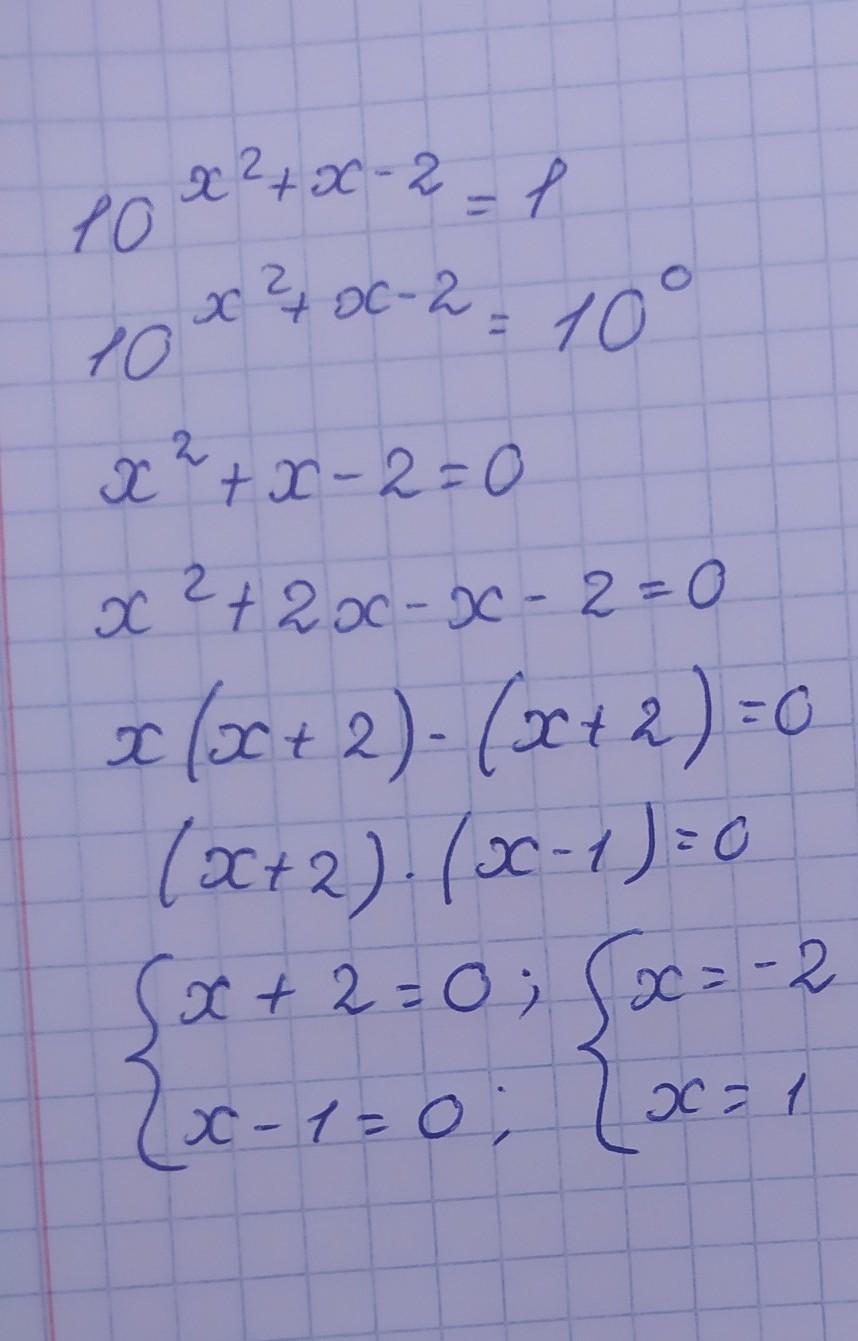 10^(x²+x-2) = 1
10^(x²+x-2) = 10⁰
x²+x-2=0
x²+2x-x-2=0
x(x+2)-(x+2)=0
(x+2)·(x-1)=0
{x+2=0; {x=-2
x-1=0; x=1